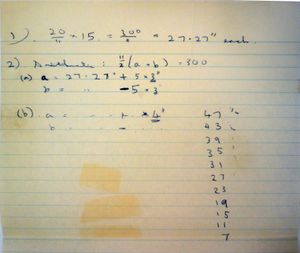 1) 20/11 × 15 = 300/11 = 27·27" each.
2) Arithmetic : 11/2 (a + b) = 300
(a) a = 27·27" + 5 × 3"
b = " - 5 × 3"
(b) a = " + × 4" 47"
b = - 43 "
39 "
35 "
31
27
23
19
15
11
7